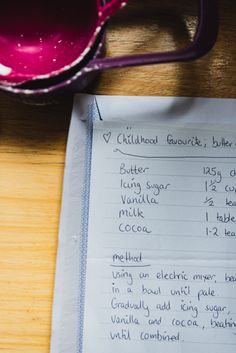 ♡ Childhood favourite, butter
Butter 125g
Icing sugar 1½ cup
Vanilla ½ tea
Milk 1 table
Cocoa 1-2 tea
method
Using an electric mixer, bea
in a bowl until pale.
Gradually add icing sugar,
vanilla and cocoa, beatin
until combined.